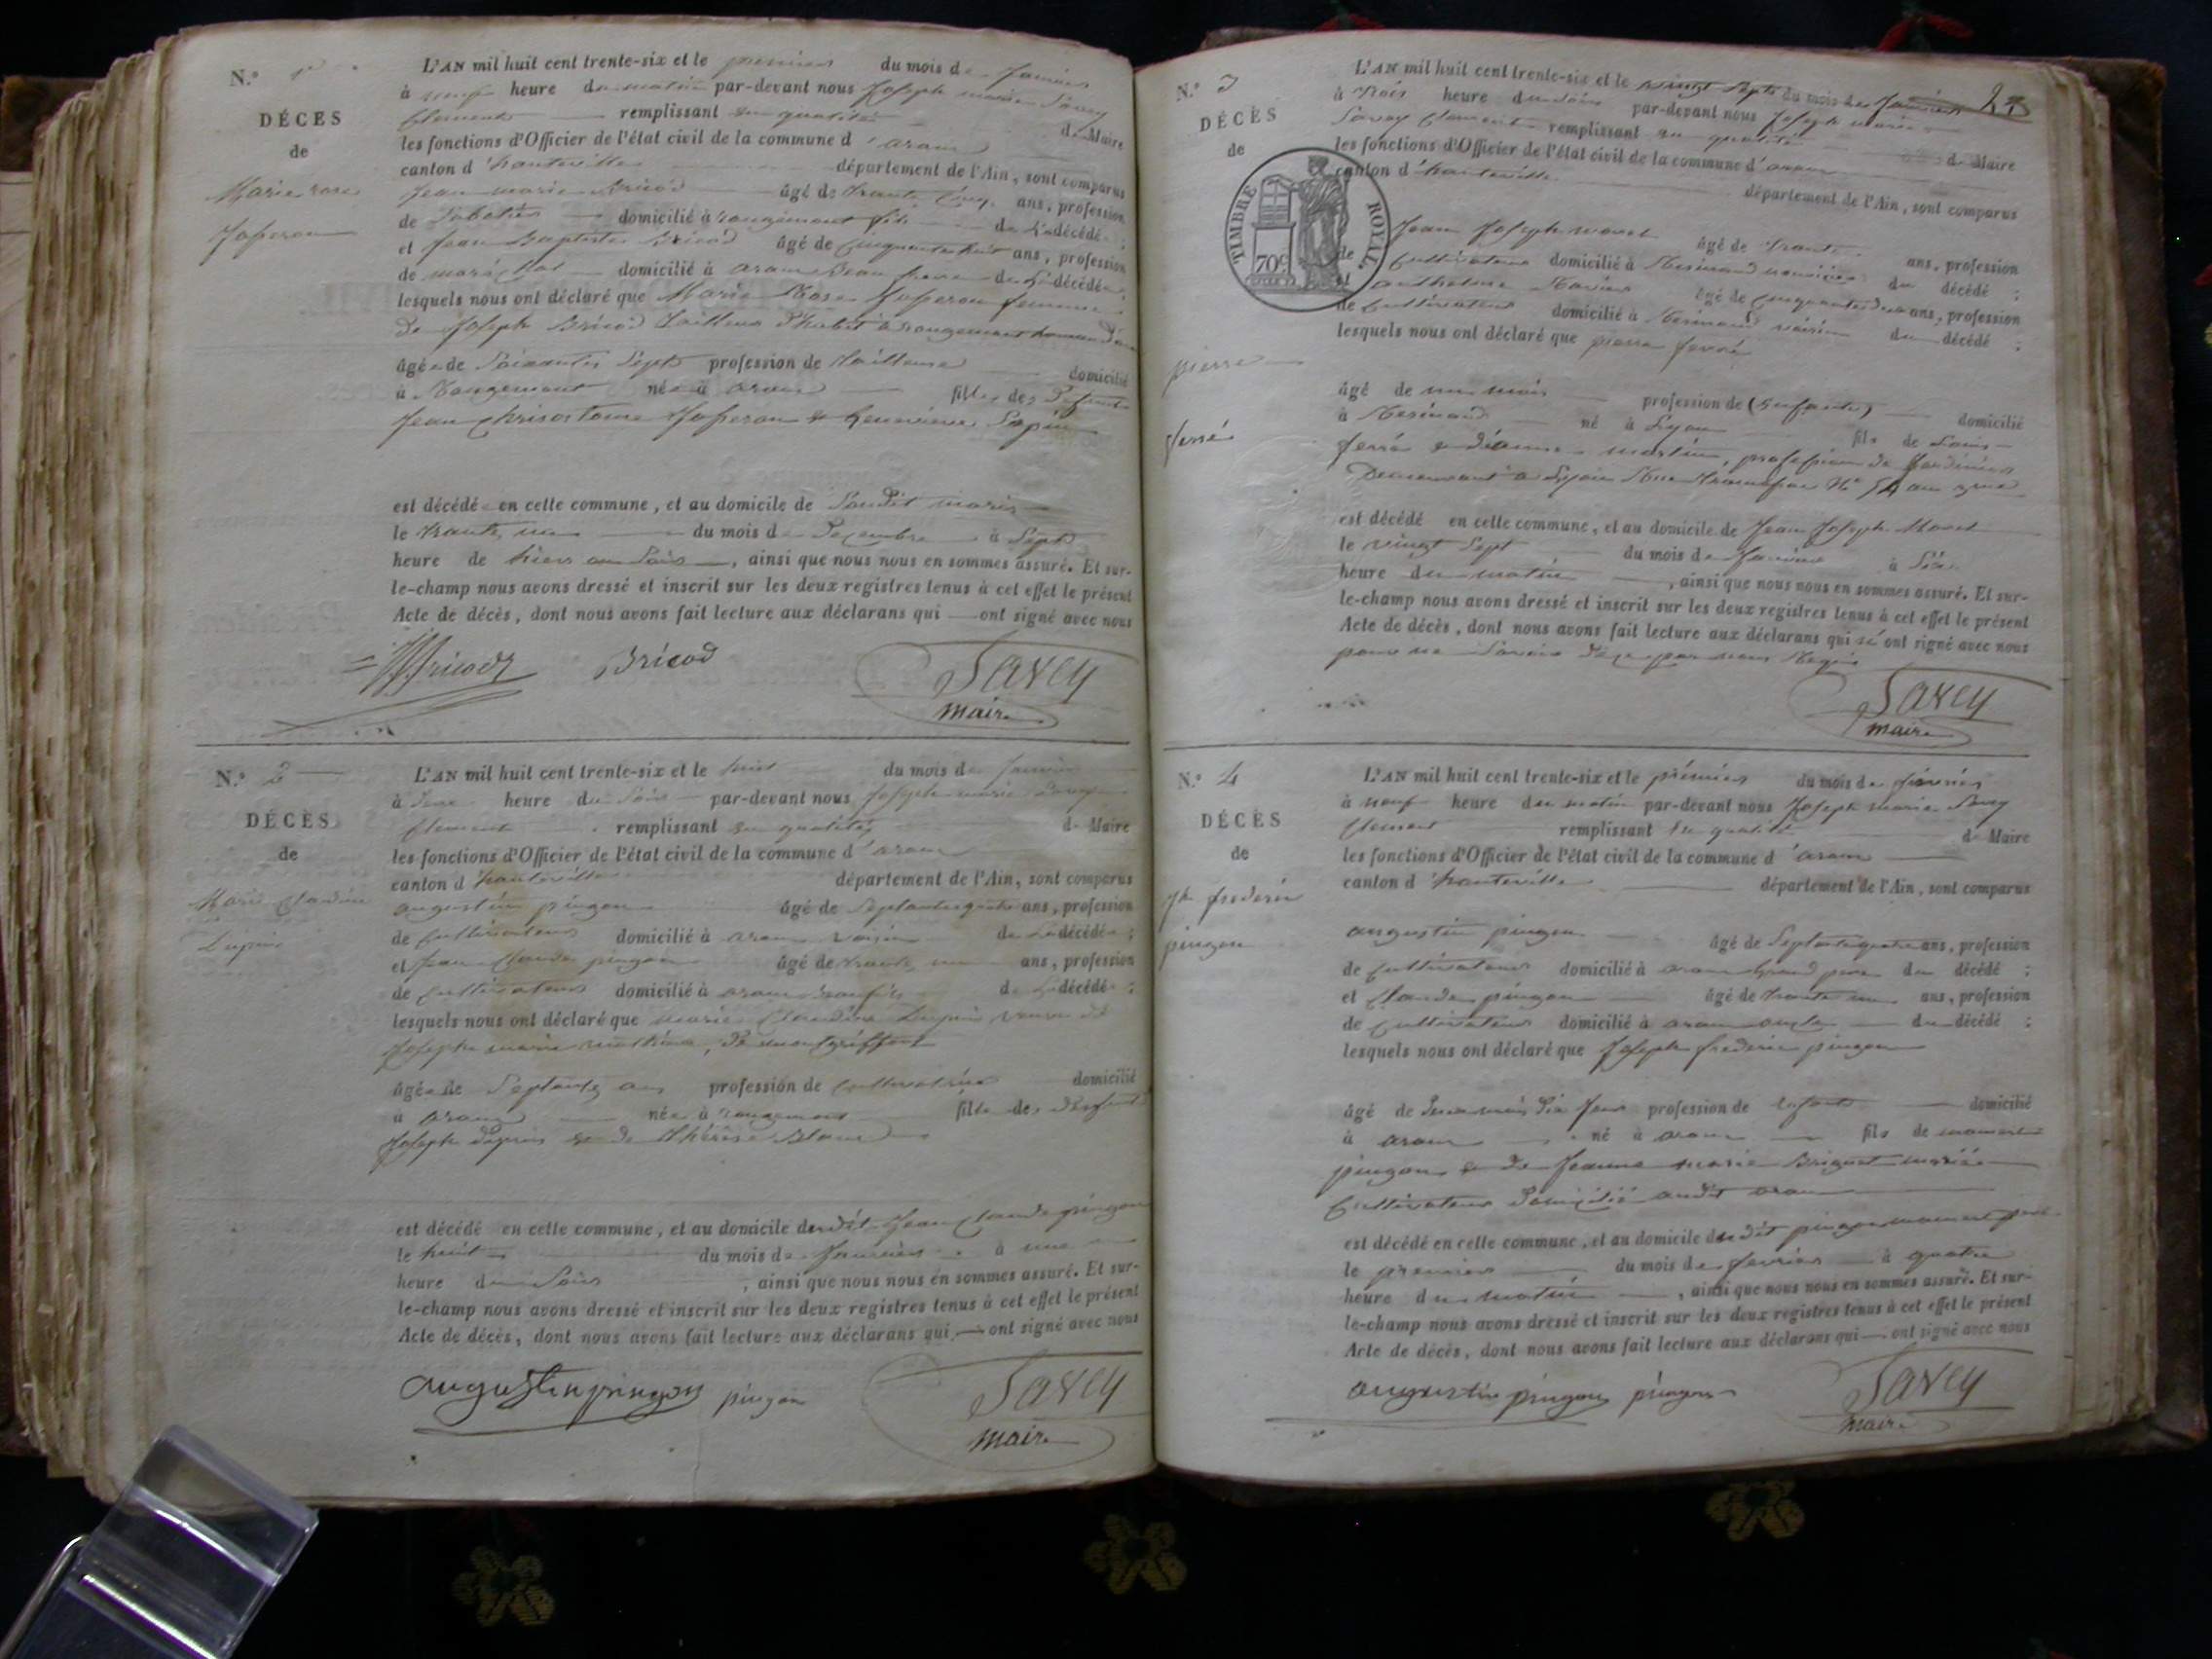 N.º 1er
DÉCES
de
Marie rose
Josserou
L'AN mil huit cent trente-six et le premier du mois de Janvier
à neuf heure du matin par-devant nous Joseph marie Savey
Clement remplissant en qualité de Maire
les fonctions d'Officier de l'état civil de la commune d'aranc
canton d'hauteville département de l'Ain, sont comparus
Jean marie Bricod âgé de trente Cinq ans, profession
de Sabotier domicilié à rougemont fils de La décédée;
et Jean Baptiste Bricod âgé de Cinquante huit ans, profession
de maréchal domicilié à aranc Beau frere de La décédée;
lesquels nous ont déclaré que Marie Rose Josserou femme
de Joseph Bricod Tailleur d'habit à rougemont
âgée de Soixante Sept profession de Tailleuse domicilié
à Rougemont née à aranc fille des Defunts
Jean Chrisostome Josserou & Genevieve Sapin
est décédé en cette commune, et au domicile de Sondit maris
le trente un du mois de Decembre à Sept
heure de hiers au Soir, ainsi que nous nous en sommes assuré. Et sur-
le-champ nous avons dressé et inscrit sur les deux registres tenus à cet effet le présent
Acte de décès, dont nous avons fait lecture aux déclarans qui ont signé avec nous
Bricod Savey
maire
N.º 2
DÉCÈS
de
Marie Claudine
Dupuis
L'AN mil huit cent trente-six et le huit du mois de Janvier
à heure du Soir par-devant nous Joseph marie Savey
Clement remplissant en qualité de Maire
les fonctions d'Officier de l'état civil de la commune d'aranc
canton d'hauteville département de l'Ain, sont comparus
augustin pingon âgé de Septante quatre ans, profession
de Cultivateur domicilié à aranc voisin de La décédée;
et Jean Claude pingon âgé de trente un ans, profession
de Cultivateur domicilié à aranc de La décédée;
lesquels nous ont déclaré que marie Claudine Dupuis veuve de
Joseph marie de montgriffon
âgée de Septante ans profession de Cultivatrice domicilié
à aranc née à rougemont fille des Defunt
Joseph dupuis & de thérèse Blanc
est décédé en cette commune, et au domicile dudit Jean Claude pingon
le huit du mois de Janvier à une
heure du Soir, ainsi que nous nous en sommes assuré. Et sur-
le-champ nous avons dressé et inscrit sur les deux registres tenus à cet effet le présent
Acte de décès, dont nous avons fait lecture aux déclarans qui ont signé avec nous
augustin pingon pingon Savey
maire
N.º 3
DÉCÈS
de
pierre
ferré
TIMBRE ROYAL
70c
L'AN mil huit cent trente-six et le vingt Sept du mois de Janvier
à trois heure du Soir par-devant nous Joseph marie
Savey Clement remplissant en qualité de Maire
les fonctions d'Officier de l'état civil de la commune d'aranc
canton d'hauteville département de l'Ain, sont comparus
Jean Joseph âgé de trente ans, profession
de Cultivateur domicilié à Resinand du décédé;
et anthelme âgé de Cinquante deux ans, profession
de Cultivateur domicilié à Resinand voisin du décédé;
lesquels nous ont déclaré que pierre ferré
âgé de un mois profession de (Enfant) domicilié
à Resinand né à Lyon fils de Louis
ferré & martin, profession de Jardinier
Demeurant à Lyon
est décédé en cette commune, et au domicile de Jean Joseph
le vingt Sept du mois de Janvier à Six
heure du matin, ainsi que nous nous en sommes assuré. Et sur-
le-champ nous avons dressé et inscrit sur les deux registres tenus à cet effet le présent
Acte de décès, dont nous avons fait lecture aux déclarans qui n'ont signé avec nous
pour ne Savoir de ce par nous Requis
Savey
maire
N.º 4
DÉCÈS
de
jh frederic
pingon
L'AN mil huit cent trente-six et le prémier du mois de fevrier
à neuf heure du matin par-devant nous Joseph marie Savey
Clement remplissant en qualité de Maire
les fonctions d'Officier de l'état civil de la commune d'aranc
canton d'hauteville département de l'Ain, sont comparus
augustin pingon âgé de Septante quatre ans, profession
de Cultivateur domicilié à aranc Grand pere du décédé;
et Claude pingon âgé de trente un ans, profession
de Cultivateur domicilié à aranc oncle du décédé;
lesquels nous ont déclaré que Joseph frederic pingon
âgé de mois dix Jour profession de Enfant domicilié
à aranc né à aranc fils de mamert
pingon & de Jeanne marie Briguet mariés
Cultivateur Domicilié audit aranc
est décédé en cette commune, et au domicile dudit pingon mamert pere
le premier du mois de fevrier à quatre
heure du matin, ainsi que nous nous en sommes assuré. Et sur-
le-champ nous avons dressé et inscrit sur les deux registres tenus à cet effet le présent
Acte de décès, dont nous avons fait lecture aux déclarans qui ont signé avec nous
augustin pingon pingon Savey
maire